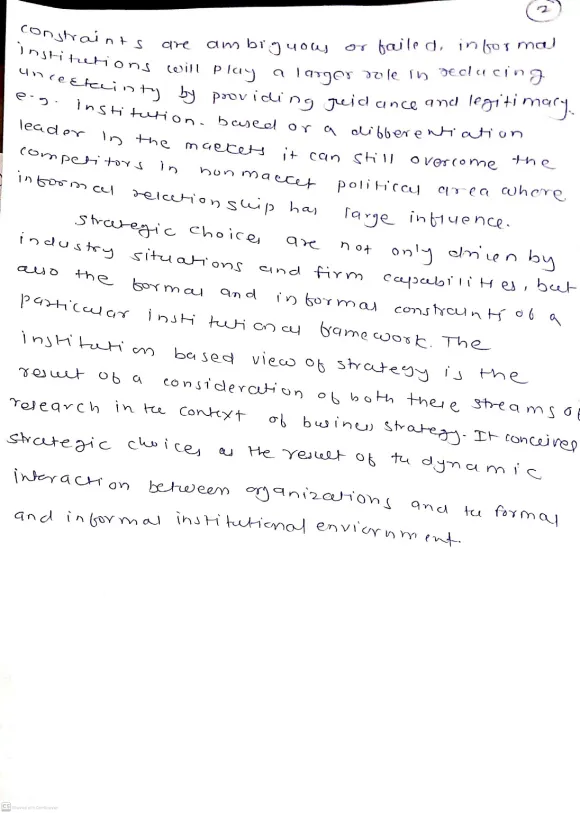 2
constraints are ambiguous or failed, informal
institutions will play a larger role in reducing
uncertainty by providing guidance and legitimacy.
e.g. institution. based or a differentiation
leader in the markets it can still overcome the
competitors in nonmarket political area where
informal relationship has large influence.
strategic choices are not only driven by
industry situations and firm capabilities, but
also the formal and informal constraints of a
particular institutional framework. The
institution based view of strategy is the
result of a consideration of both these streams of
research in the context of business strategy. It conceives
strategic choices as the result of the dynamic
interaction between organizations and the formal
and informal institutional enviornment.
CS CamScanner